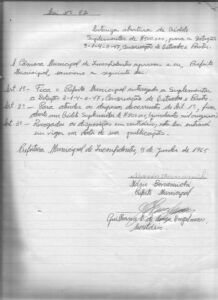 Lei nº 82
Autoriza abertura de Crédito
Suplementar de 800.000, para a dotação
3-1-4-0-47, Conservação de Estradas e Pontes.
A Câmara Municipal de Inconfidentes aprovou e eu, Prefeito
Municipal, sanciono a seguinte lei:
Art. 1º - Fica o Prefeito Municipal autorizado a Suplementar
a Dotação 3-1-4-0-47, Conservação de Estradas e Pontes.
Art. 2º - Para atender as despesas decorrente do Art. 1º, fica
aberto um Crédito Suplementar de
Art. 3º - Revogadas as disposições em contrário, esta lei entrará
em vigor na data de sua publicação.
Prefeitura Municipal de Inconfidentes, 9 de junho de 1965
Prefeito Municipal
Guilherme